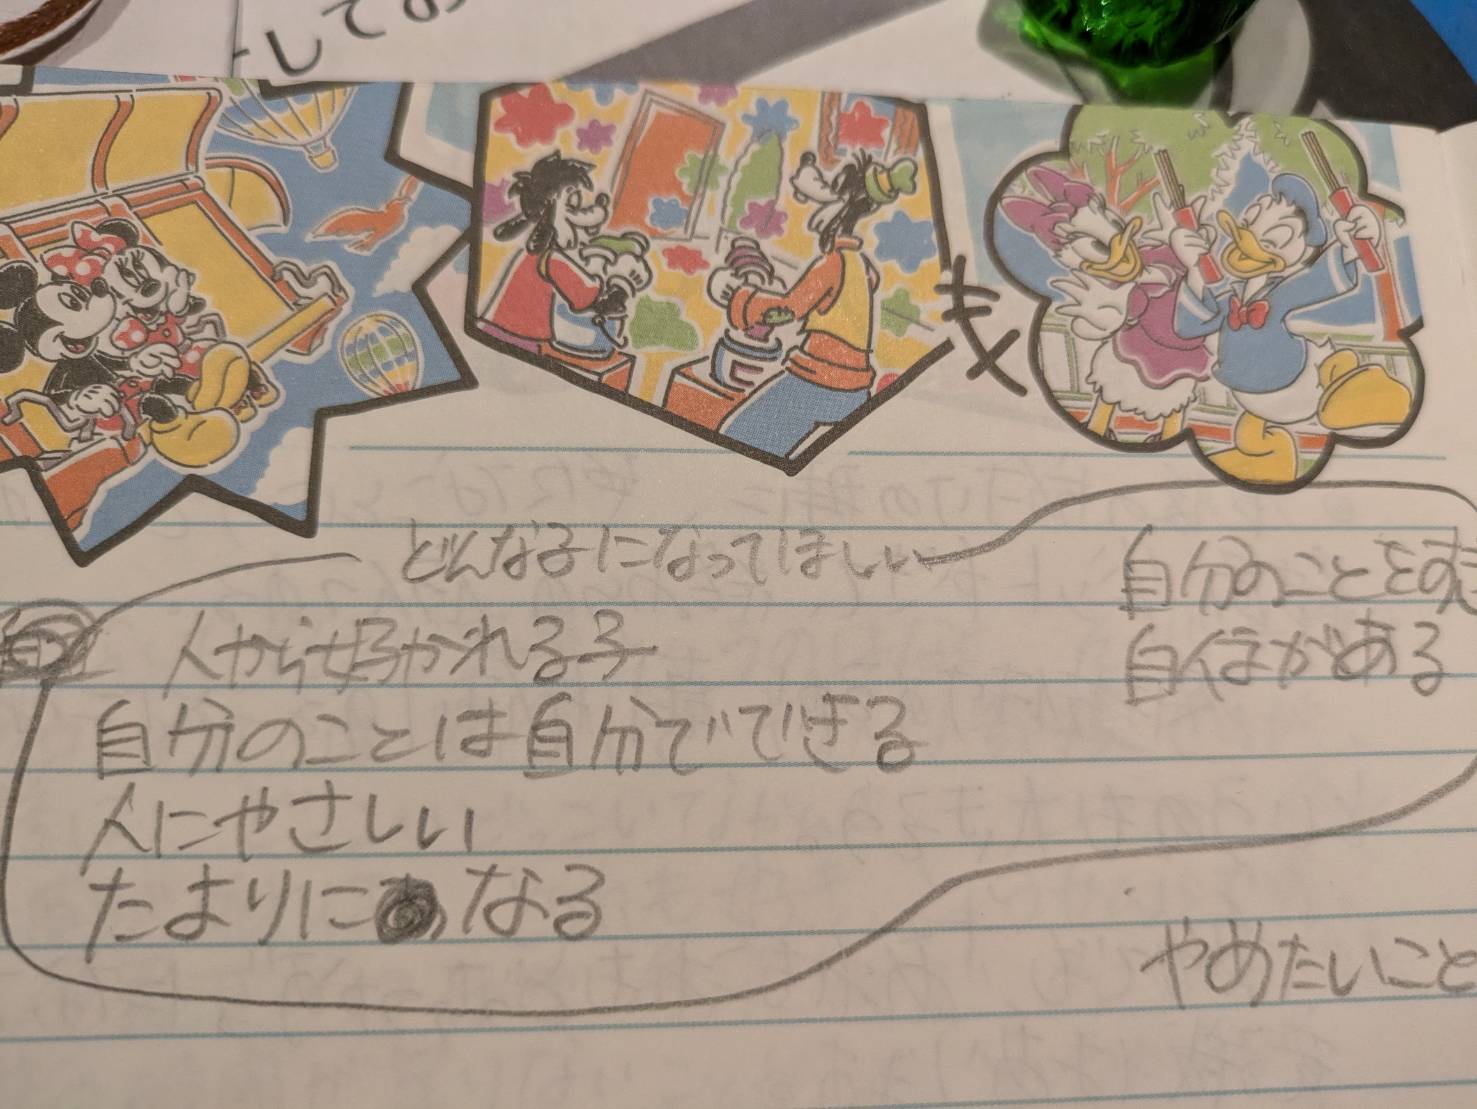 してお
どんな子になってほしい
人から好かれる子
自分のことは自分でできる
人にやさしい
たよりになる
自分のことをす
自信がある
やめたいこと